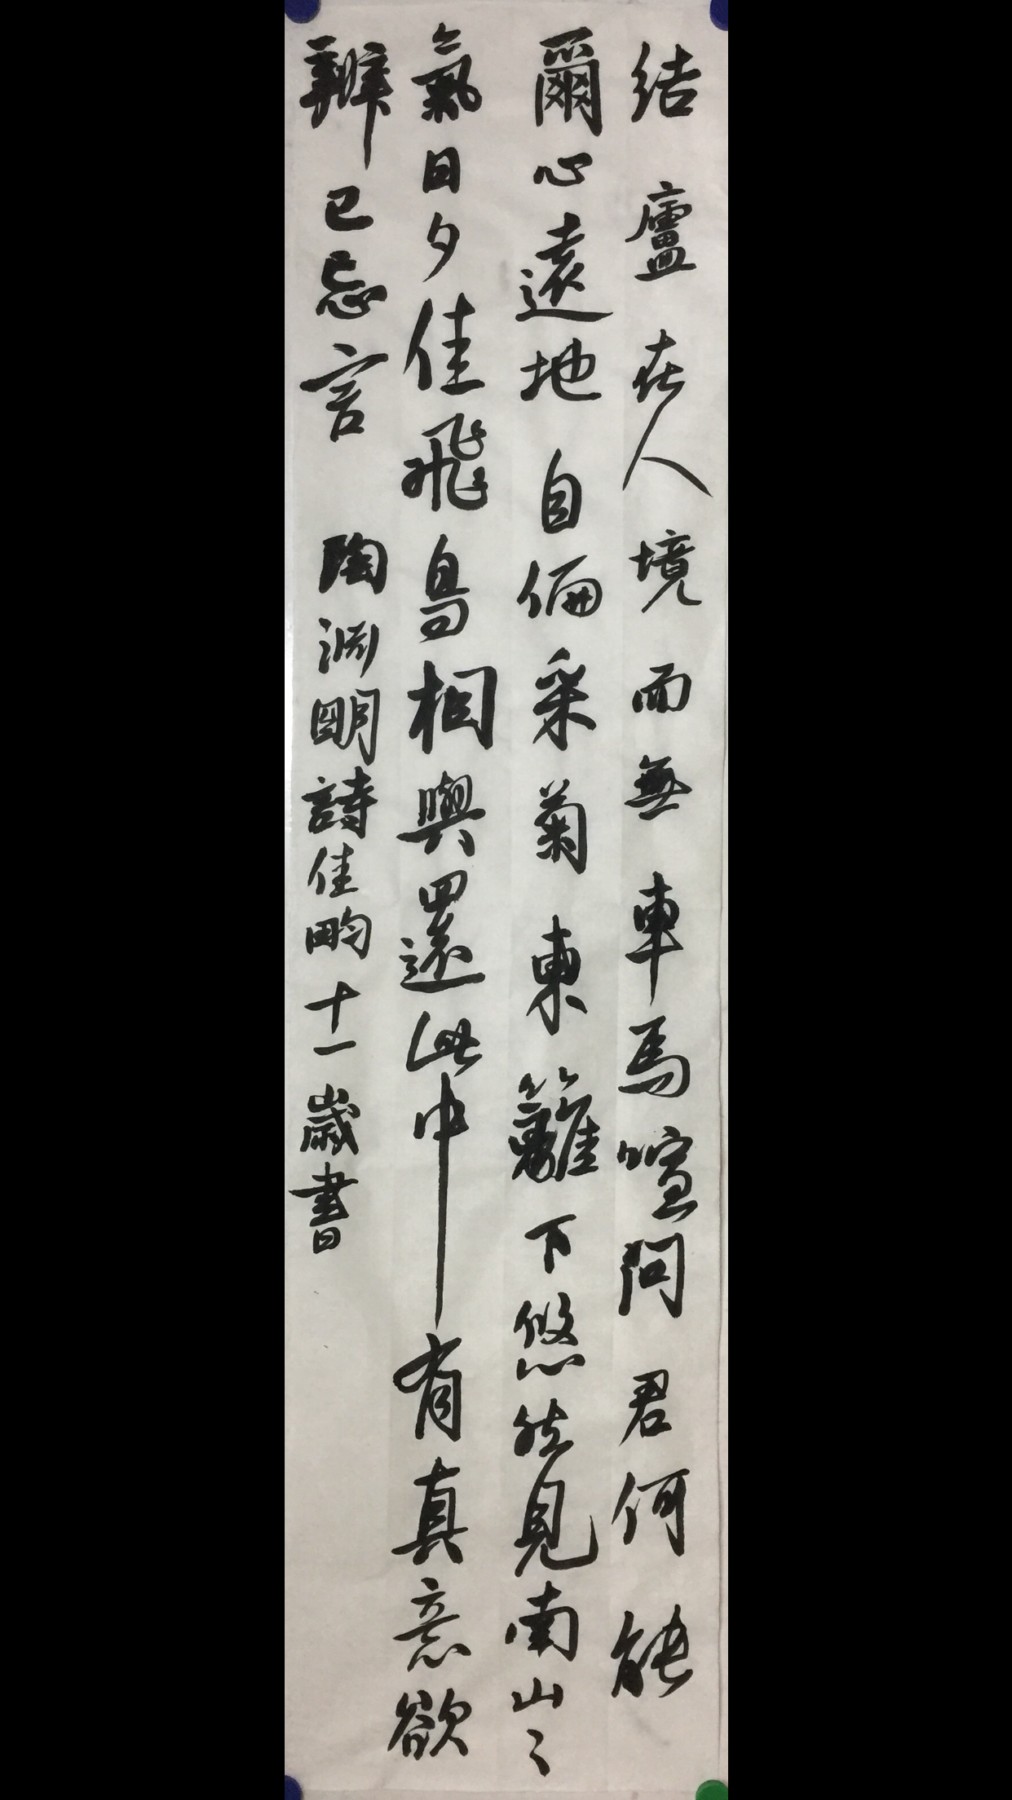 結廬在人境而無車馬喧問君何能
爾心遠地自偏采菊東籬下悠然見南山〻
氣日夕佳飛鳥相與還此中有真意欲
辨已忘言 陶淵明詩佳畇十一歲書